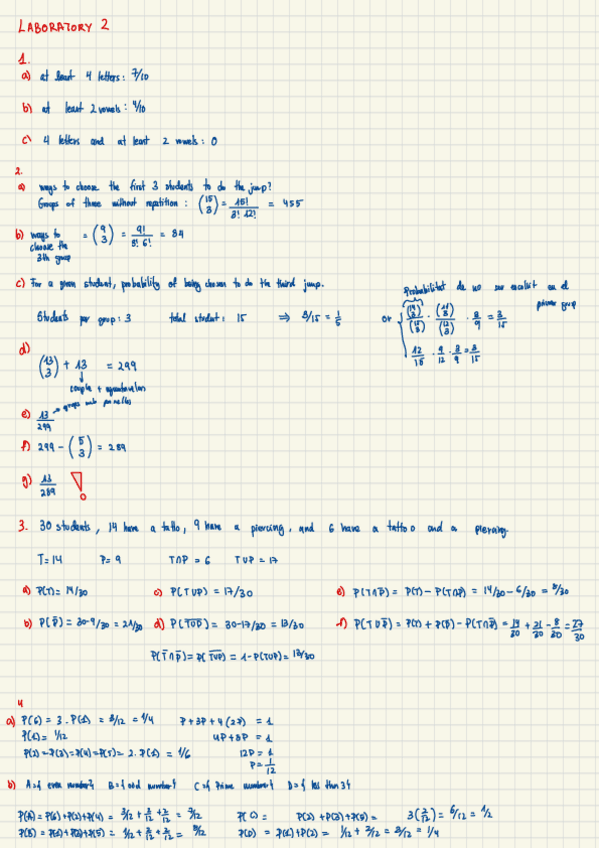 LABORATORY 2
1.
a) at least 4 letters: 7/10
b) at least 2 vowels: 4/10
c) 4 letters and at least 2 vowels: 0
2.
a) ways to choose the first 3 students to do the jump?
Groups of three without repetition: (15 3) = 15!/3! 12! = 455
b) ways to choose the 3th group = (9 3) = 9!/3! 6! = 84
c) For a given student, probability of being chosen to do the third jump.
Probabilitat de no ser escollit en el primer grup
Students per group: 3 total student: 15 ⇒ 3/15 = 1/5 or (14 3)/(15 3) · (11 3)/(12 3) · 3/9 = 3/15
12/15 · 9/12 · 3/9 = 3/15
d) (13 3) + 13 = 299
couple +
e) 13/299 → grups amb parelles
f) 299 - (5 3) = 289
g) 13/289 !
3. 30 students, 14 have a tatto, 9 have a piercing, and 6 have a tattoo and a piercing.
T = 14 P = 9 T∩P = 6 T∪P = 17
a) P(T) = 14/30 c) P(T∪P) = 17/30 e) P(T∩P̄) = P(T) - P(T∩P) = 14/30 - 6/30 = 8/30
b) P(P̄) = 30-9/30 = 21/30 d) P(T̅∪̅P̅) = 30-17/30 = 13/30 f) P(T∪P̄) = P(T) + P(P̄) - P(T∩P̄) = 14/30 + 21/30 - 8/30 = 27/30
P(T̄∩P̄) = P(T̅∪̅P̅) = 1 - P(T∪P) = 13/30
4
a) P(6) = 3 · P(1) = 3/12 = 1/4 P + 3P + 4(2P) = 1
P(1) = 1/12 4P + 8P = 1
P(2) = P(3) = P(4) = P(5) = 2 · P(1) = 1/6 12P = 1
P = 1/12
b) A={even number} B={odd number} C={Prime number} D={less than 3}
P(A) = P(6) + P(2) + P(4) = 3/12 + 2/12 + 2/12 = 7/12 P(C) = P(2) + P(3) + P(5) = 3(2/12) = 6/12 = 1/2
P(B) = P(1) + P(3) + P(5) = 1/12 + 2/12 + 2/12 = 5/12 P(D) = P(1) + P(2) = 1/12 + 2/12 = 3/12 = 1/4